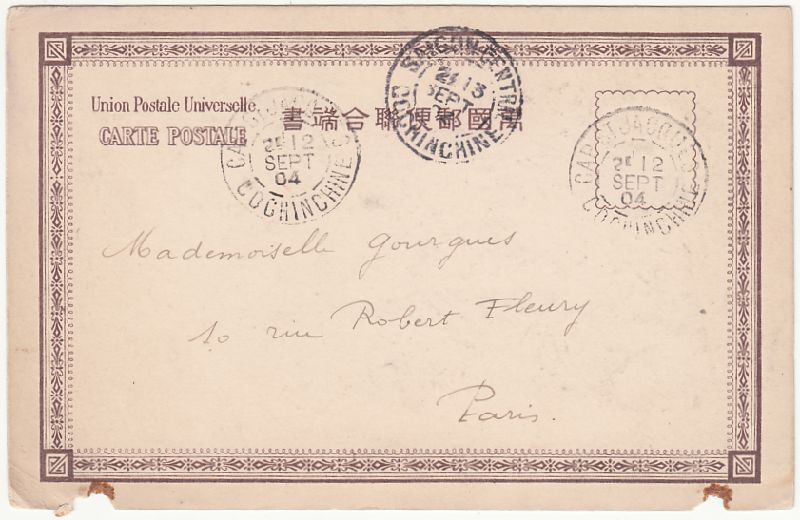 Union Postale Universelle.
CARTE POSTALE
書端合聯便郵國萬
CAP ST JACQUES
2E 12
SEPT
04
COCHINCHINE
SAIGON-CENTRAL
2E 13
SEPT
04
COCHINCHINE
CAP ST JACQUES
2E 12
SEPT
04
COCHINCHINE
Mademoiselle Gourgues
10 rue Robert Fleury
Paris.